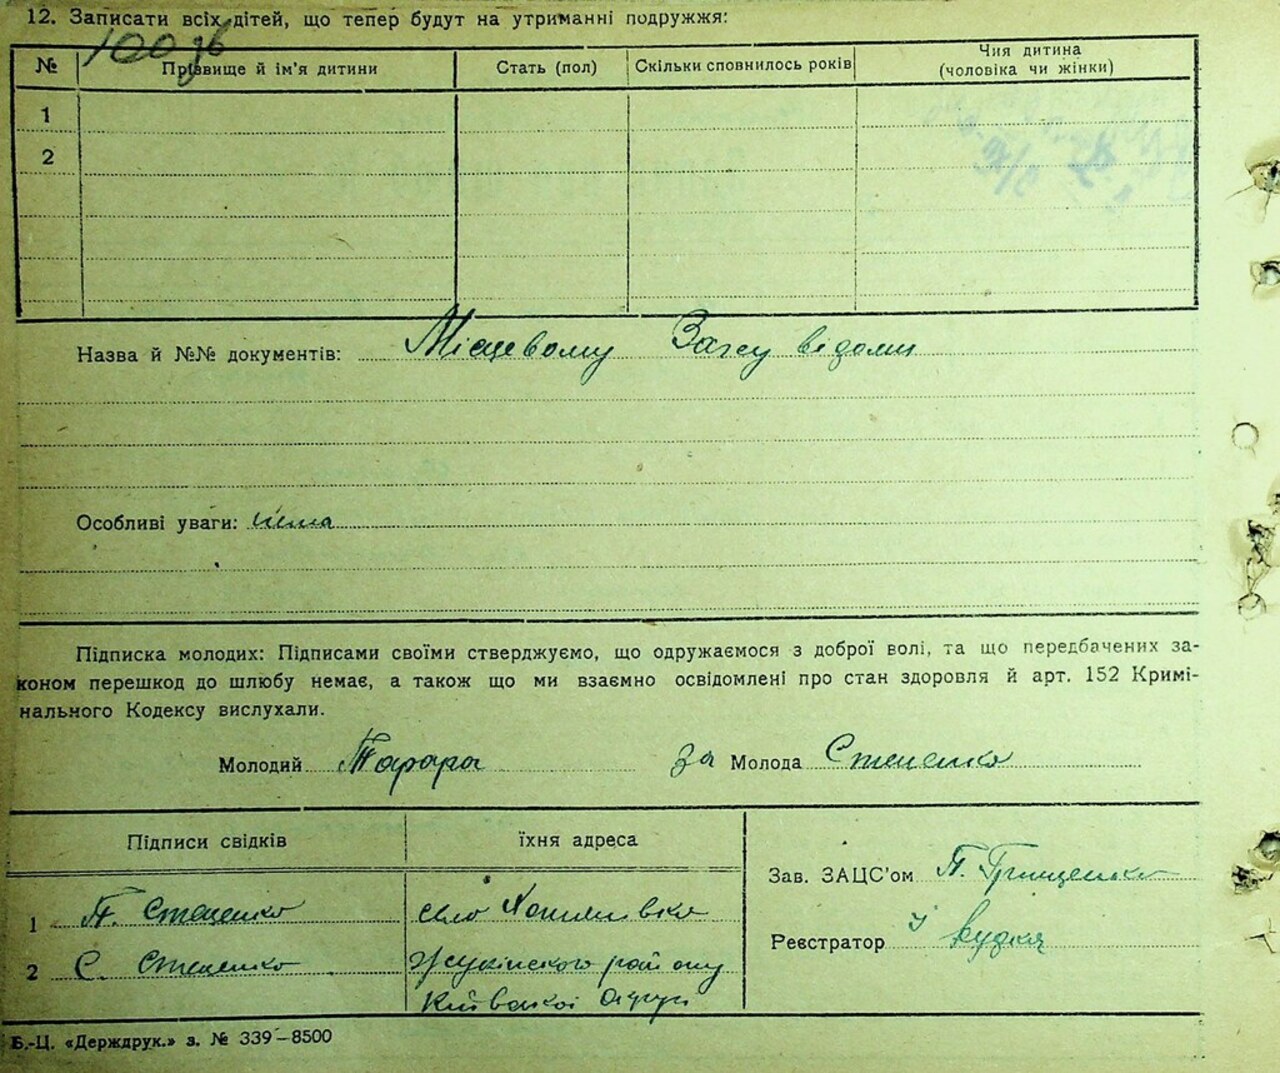 12. Записати всіх дітей, що тепер будут на утриманні подружжя:
100 зв
№ Прізвище й ім'я дитини Стать (пол) Скільки сповнилось років Чия дитина
(чоловіка чи жінки)
1
2
Назва й №№ документів: Місцевому Загсу відоми
Особливі уваги: нема
Підписка молодих: Підписами своїми стверджуємо, що одружаємося з доброї волі, та що передбачених за-
коном перешкод до шлюбу немає, а також що ми взаємно освідомлені про стан здоровля й арт. 152 Кримі-
нального Кодексу вислухали.
Молодий Тарара за Молода Стеценко
Підписи свідків їхня адреса
Зав. ЗАЦС'ом П. Грищенко
1 П. Стеценко село
Реєстратор
2 С. Стеценко Жукінского району
Київської округи
Б.-Ц. «Держдрук.» з. № 339—8500